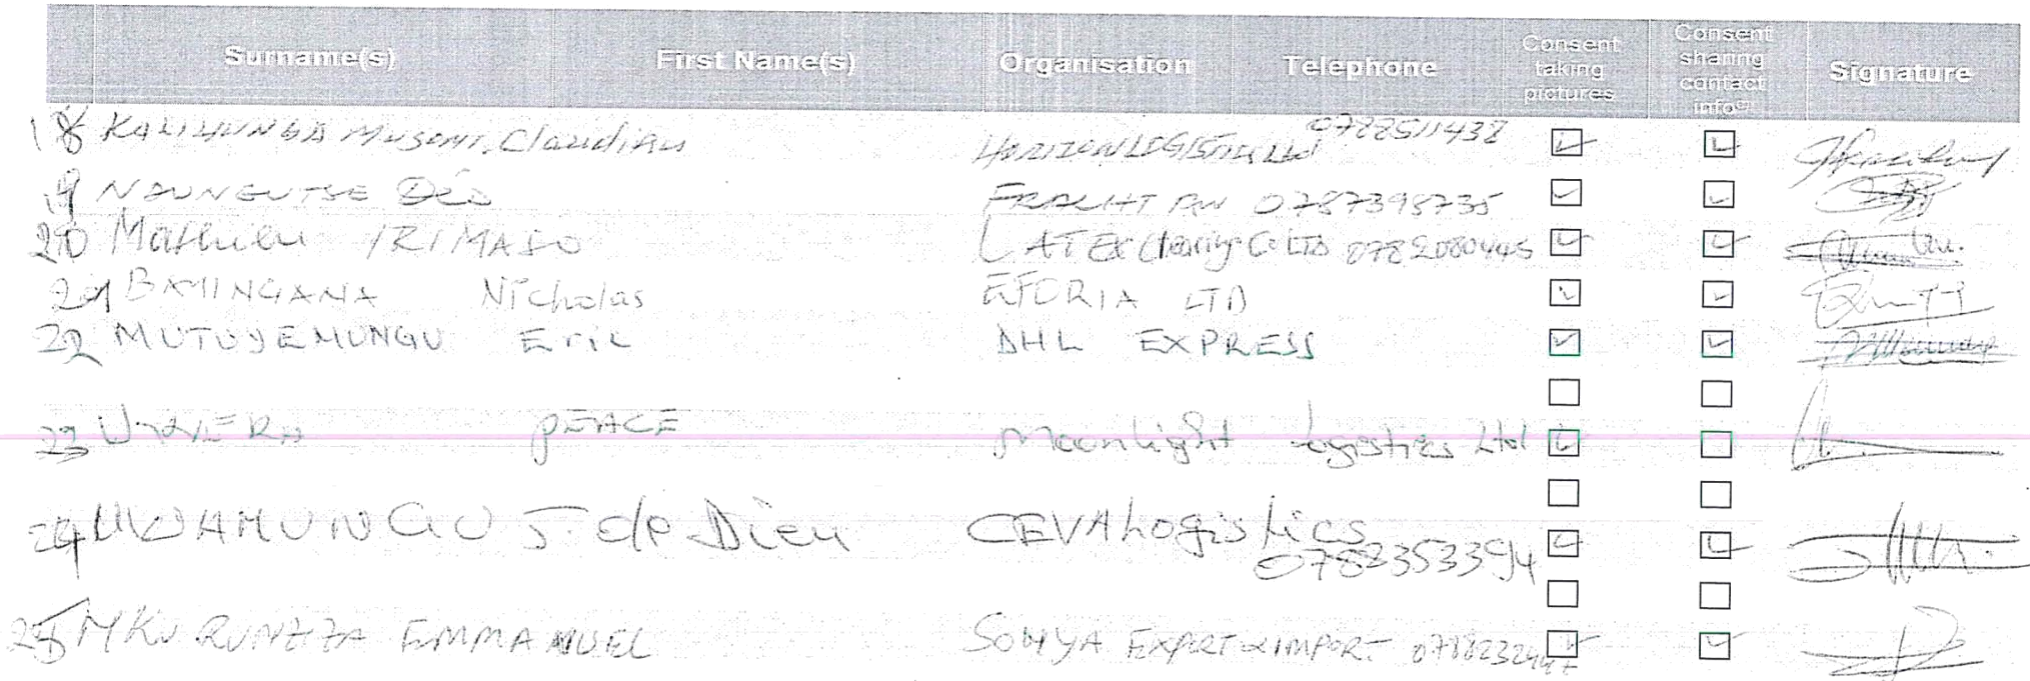 Surname(s) First Name(s) Organisation Telephone Consent taking pictures Consent sharing contact info Signature
18 Musoni Claudian HORIZON LOGISTICS Ltd 0788511438
19 Déo 0787395735
20 Mathieu IRIMASO LATEX Clearing Co LTD
21 Nicholas LTD
22 MUTUYEMUNGU Eric DHL EXPRESS
23 UWERA PEACE Moonlight Logistics Ltd
24 UWAMUNGU J. de Dieu CEVA Logistics
0782353394
25 MKURUNZIZA EMMANUEL SOMYA EXPORT & IMPORT